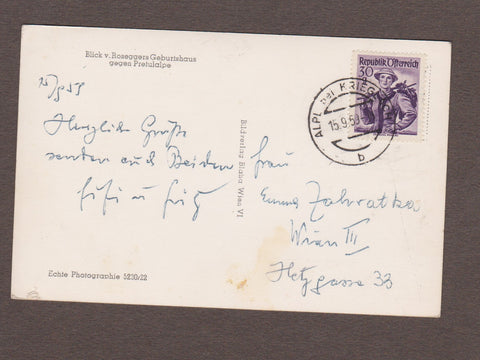 Blick v. Roseggers Geburtshaus
gegen Pretulalpe
15/9 53
Herzliche Grüße
senden euch Beiden
Fifi u Fritz
Echte Photographie 5230/22
Bildverlag Blaha Wien VI
Republik Österreich
30
ALPL bei KRIEGLACH
15.9.53
b
Frau
Emma Zahratka
Wien III
Hetzgasse 33